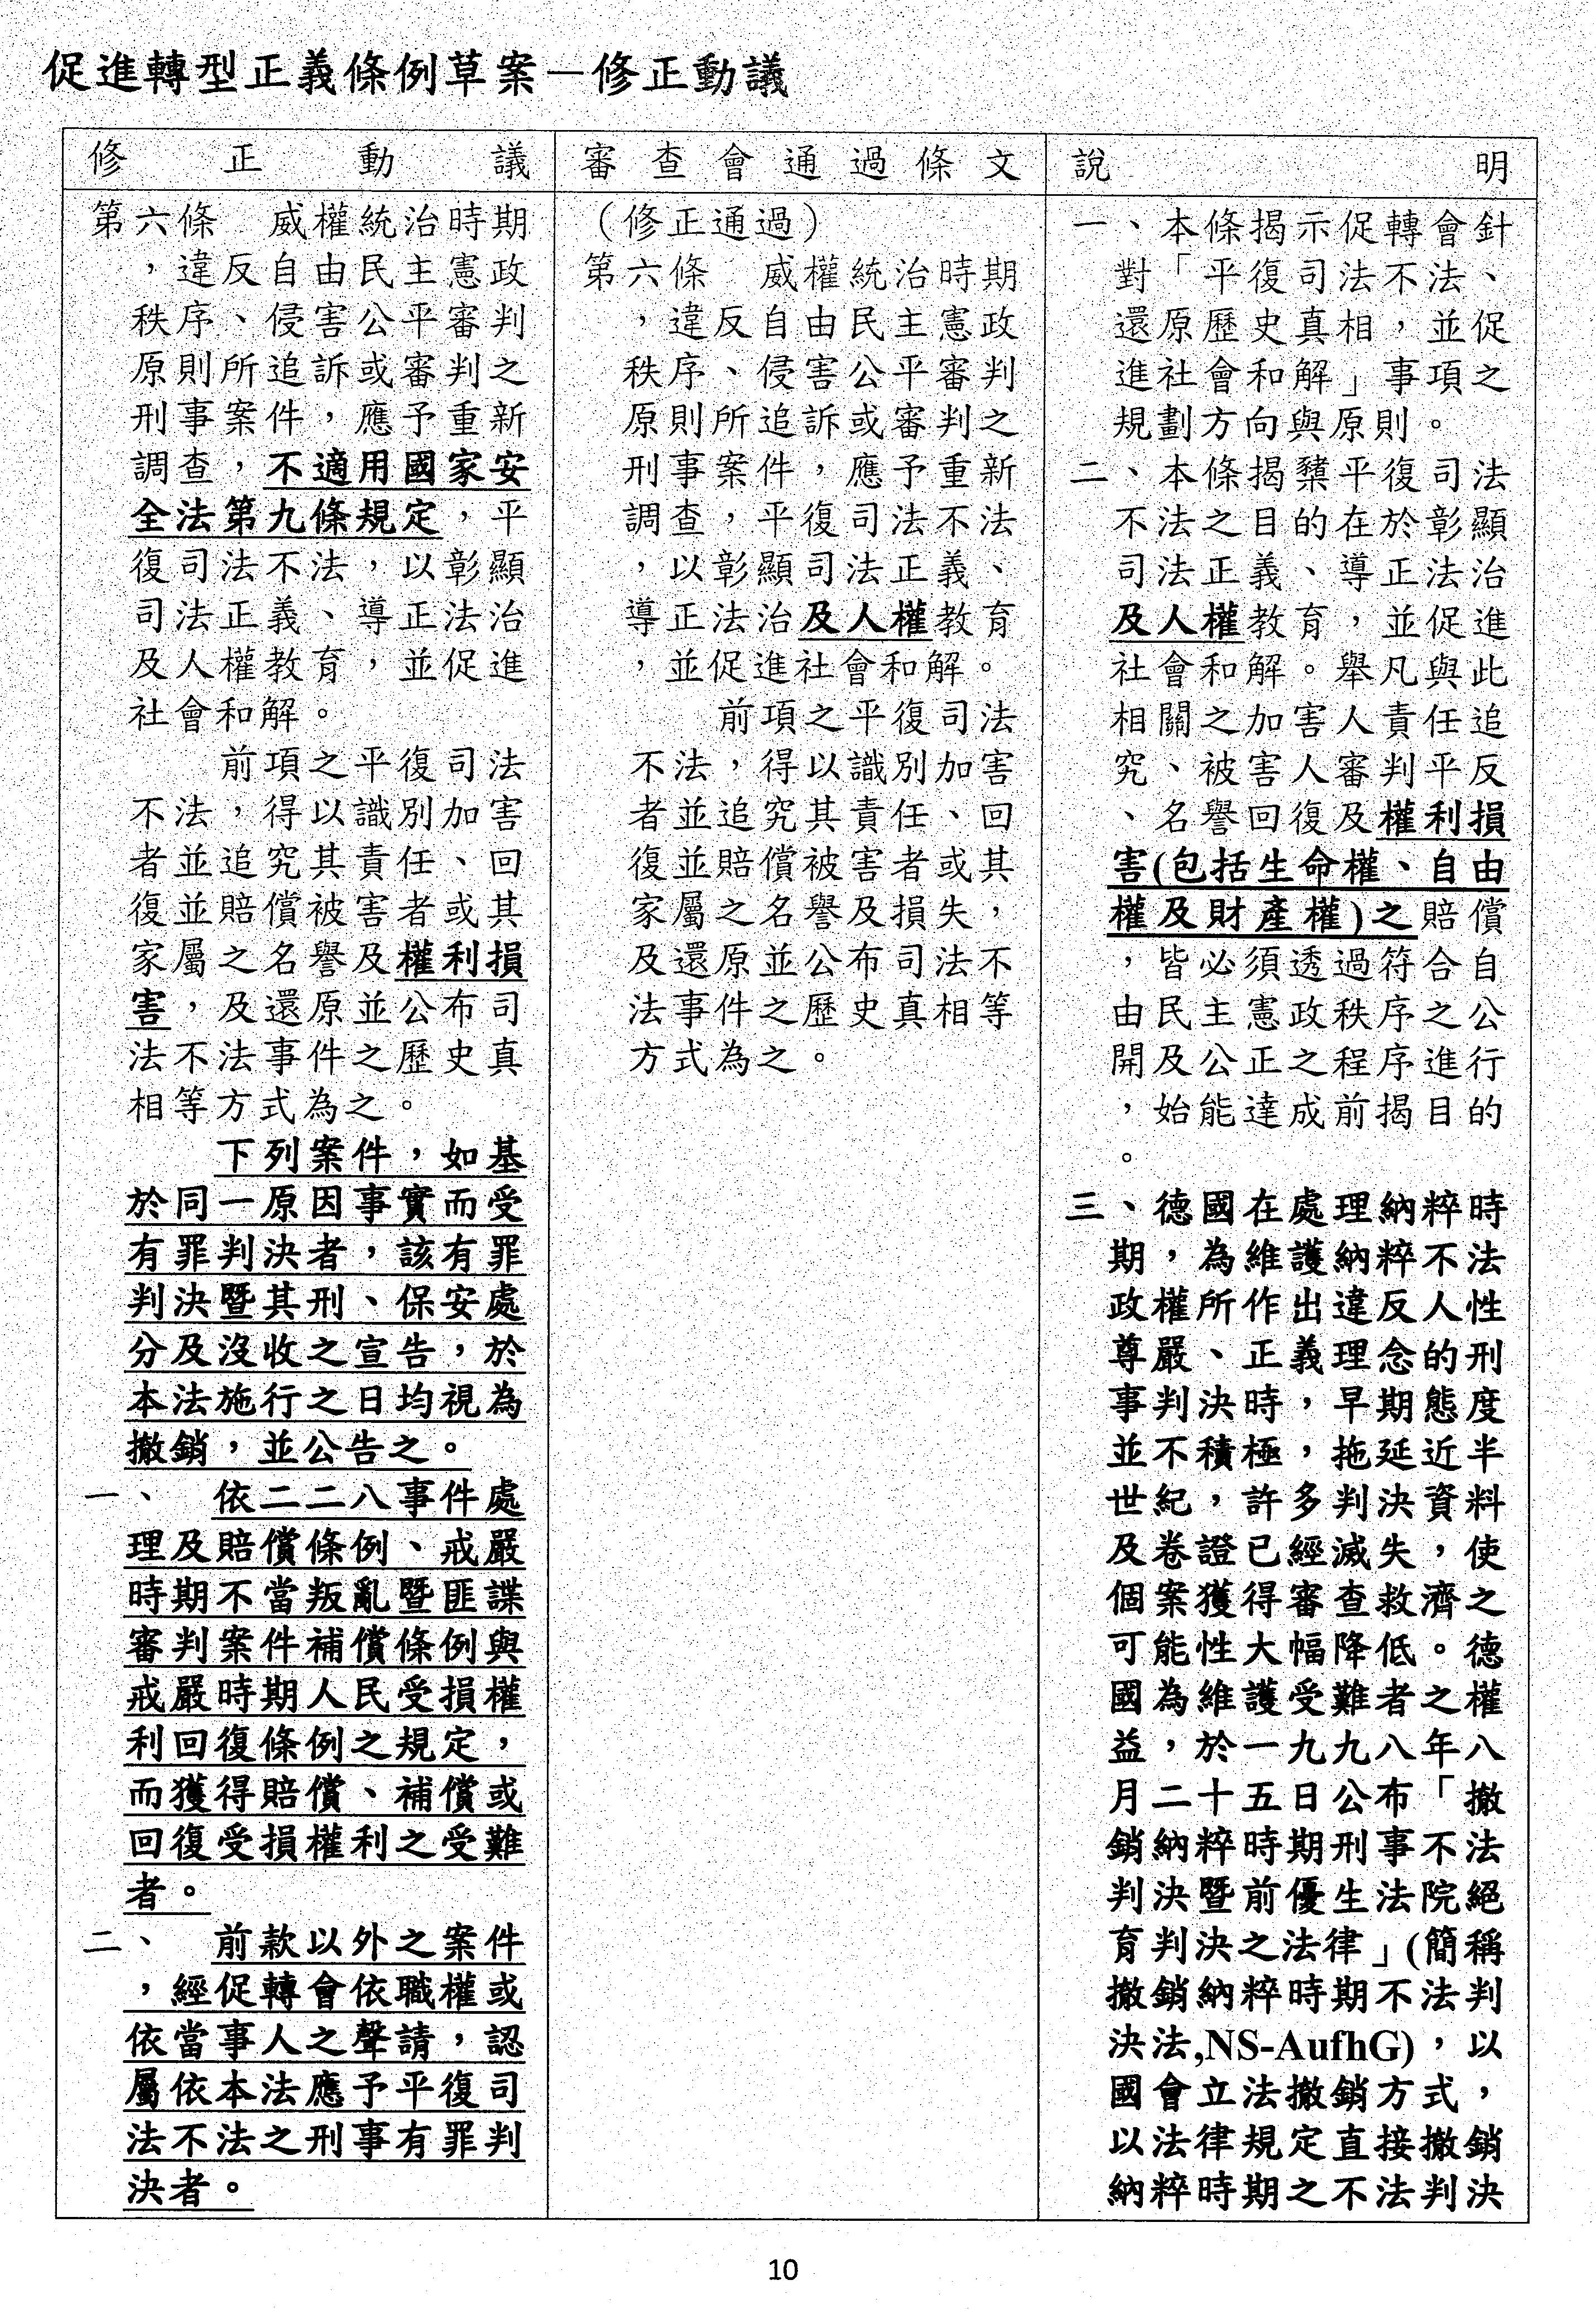 促進轉型正義條例草案－修正動議
修正動議
第六條　威權統治時期
，違反自由民主憲政
秩序、侵害公平審判
原則所追訴或審判之
刑事案件，應予重新
調查，不適用國家安
全法第九條規定，平
復司法不法，以彰顯
司法正義、導正法治
及人權教育，並促進
社會和解。
前項之平復司法
不法，得以識別加害
者並追究其責任、回
復並賠償被害者或其
家屬之名譽及權利損
害，及還原並公布司
法不法事件之歷史真
相等方式為之。
下列案件，如基
於同一原因事實而受
有罪判決者，該有罪
判決暨其刑、保安處
分及沒收之宣告，於
本法施行之日均視為
撤銷，並公告之。
一、　依二二八事件處
理及賠償條例、戒嚴
時期不當叛亂暨匪諜
審判案件補償條例與
戒嚴時期人民受損權
利回復條例之規定，
而獲得賠償、補償或
回復受損權利之受難
者。
二、　前款以外之案件
，經促轉會依職權或
依當事人之聲請，認
屬依本法應予平復司
法不法之刑事有罪判
決者。
審查會通過條文
（修正通過）
第六條　威權統治時期
，違反自由民主憲政
秩序、侵害公平審判
原則所追訴或審判之
刑事案件，應予重新
調查，平復司法不法
，以彰顯司法正義、
導正法治及人權教育
，並促進社會和解。
前項之平復司法
不法，得以識別加害
者並追究其責任、回
復並賠償被害者或其
家屬之名譽及損失，
及還原並公布司法不
法事件之歷史真相等
方式為之。
說明
一、本條揭示促轉會針
對「平復司法不法、
還原歷史真相，並促
進社會和解」事項之
規劃方向與原則。
二、本條揭櫫平復司法
不法之目的在於彰顯
司法正義、導正法治
及人權教育，並促進
社會和解。舉凡與此
相關之加害人責任追
究、被害人審判平反
、名譽回復及權利損
害(包括生命權、自由
權及財產權)之賠償
，皆必須透過符合自
由民主憲政秩序之公
開及公正之程序進行
，始能達成前揭目的
。
三、德國在處理納粹時
期，為維護納粹不法
政權所作出違反人性
尊嚴、正義理念的刑
事判決時，早期態度
並不積極，拖延近半
世紀，許多判決資料
及卷證已經滅失，使
個案獲得審查救濟之
可能性大幅降低。德
國為維護受難者之權
益，於一九九八年八
月二十五日公布「撤
銷納粹時期刑事不法
判決暨前優生法院絕
育判決之法律」(簡稱
撤銷納粹時期不法判
決法,NS-AufhG)，以
國會立法撤銷方式，
以法律規定直接撤銷
納粹時期之不法判決
10